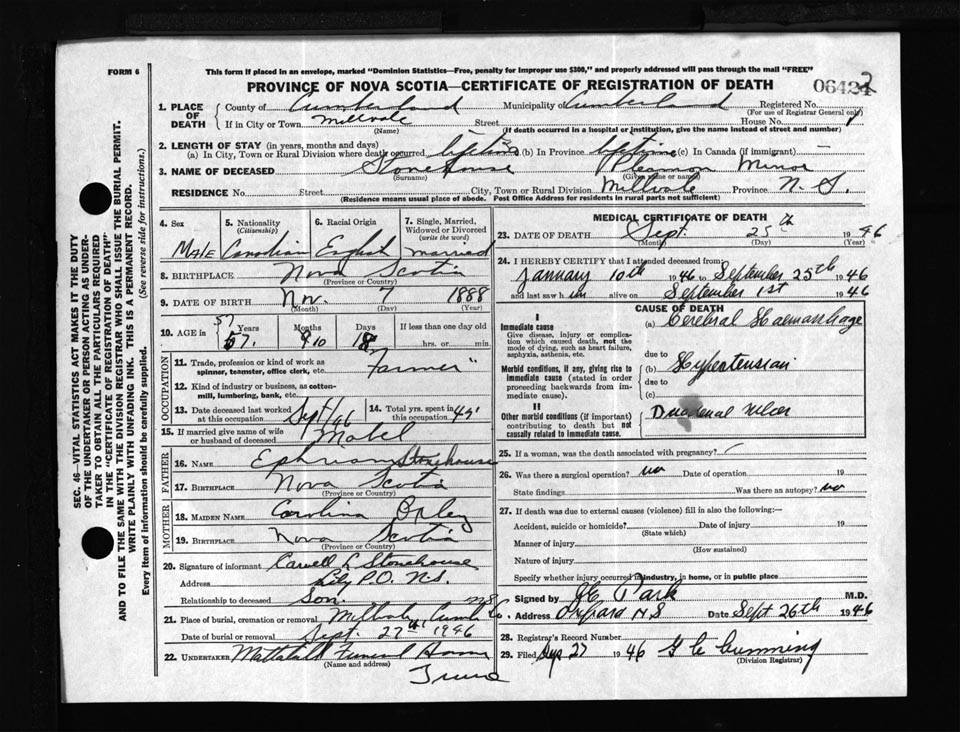 FORM 6
This form if placed in an envelope, marked "Dominion Statistics—Free, penalty for improper use $300," and properly addressed will pass through the mail "FREE"
PROVINCE OF NOVA SCOTIA—CERTIFICATE OF REGISTRATION OF DEATH
1. PLACE OF DEATH { County of Cumberland Municipality of Cumberland Registered No.
(For use of Registrar General only)
If in City or Town Millvale Street House No.
(Name) (If death occurred in a hospital or institution, give the name instead of street and number)
2. LENGTH OF STAY (in years, months and days)
(a) In City, Town or Rural Division where death occurred lifetime (b) In Province lifetime (c) In Canada (if immigrant) —
3. NAME OF DECEASED Stonehouse Minor
(Surname) (Given name or names)
RESIDENCE No. Street City, Town or Rural Division Millvale Province N.S.
(Residence means usual place of abode. Post Office Address for residents in rural parts not sufficient)
SEC. 46—VITAL STATISTICS ACT MAKES IT THE DUTY
OF THE UNDERTAKER OR PERSON ACTING AS UNDER-
TAKER TO OBTAIN ALL THE PARTICULARS REQUIRED
IN THE "CERTIFICATE OF REGISTRATION OF DEATH"
AND TO FILE THE SAME WITH THE DIVISION REGISTRAR WHO SHALL ISSUE THE BURIAL PERMIT.
WRITE PLAINLY WITH UNFADING INK. THIS IS A PERMANENT RECORD.
Every item of information should be carefully supplied. (See reverse side for instructions.)
4. Sex
Male
5. Nationality
(Citizenship)
Canadian
6. Racial Origin
English
7. Single, Married,
Widowed or Divorced
(write the word)
married
8. BIRTHPLACE Nova Scotia
(Province or Country)
9. DATE OF BIRTH Nov. 7 1888
(Month) (Day) (Year)
10. AGE in { 57 Years Months 10 Days 18 If less than one day old
57. hrs. or min.
OCCUPATION
11. Trade, profession or kind of work as
spinner, teamster, office clerk, etc. Farmer
12. Kind of industry or business, as cotton-
mill, lumbering, bank, etc. "
13. Date deceased last worked
at this occupation Sept/46
14. Total yrs. spent in
this occupation
15. If married give name of wife
or husband of deceased Mabel
FATHER
16. NAME Stonehouse
17. BIRTHPLACE Nova Scotia
(Province or Country)
MOTHER
18. MAIDEN NAME Carolina
19. BIRTHPLACE Nova Scotia
(Province or Country)
20. Signature of informant L Stonehouse
Address P.O. N.S.
Relationship to deceased Son. N.S.
21. Place of burial, cremation or removal Millvale, Cumb Co.
Date of burial or removal Sept. 27th 1946
22. UNDERTAKER Mattatall Funeral Home
(Name and address)
Truro
MEDICAL CERTIFICATE OF DEATH
23. DATE OF DEATH Sept. 25th 1946
(Month) (Day) (Year)
24. I HEREBY CERTIFY that I attended deceased from
January 10th 1946 to September 25th 1946
and last saw him alive on September 1st 1946
CAUSE OF DEATH
I
Immediate cause
Give disease, injury or complica-
tion which caused death, not the
mode of dying, such as heart failure,
asphyxia, asthenia, etc.
(a) Cerebral Haemorrhage
due to
Morbid conditions, if any, giving rise to
immediate cause (stated in order
proceeding backwards from im-
mediate cause).
(b) Hypertension
due to
(c)
II
Other morbid conditions (if important)
contributing to death but not
causally related to immediate cause.
Duodenal Ulcer
25. If a woman, was the death associated with pregnancy?
26. Was there a surgical operation? no Date of operation 19
State findings Was there an autopsy? no
27. If death was due to external causes (violence) fill in also the following:—
Accident, suicide or homicide? Date of injury 19
(State which)
Manner of injury
(How sustained)
Nature of injury
Specify whether injury occurred in industry, in home, or in public place
Signed by Park M.D.
Address Oxford N.S Date Sept. 26th 1946
28. Registrar's Record Number
29. Filed 27 1946 Cumming
(Division Registrar)